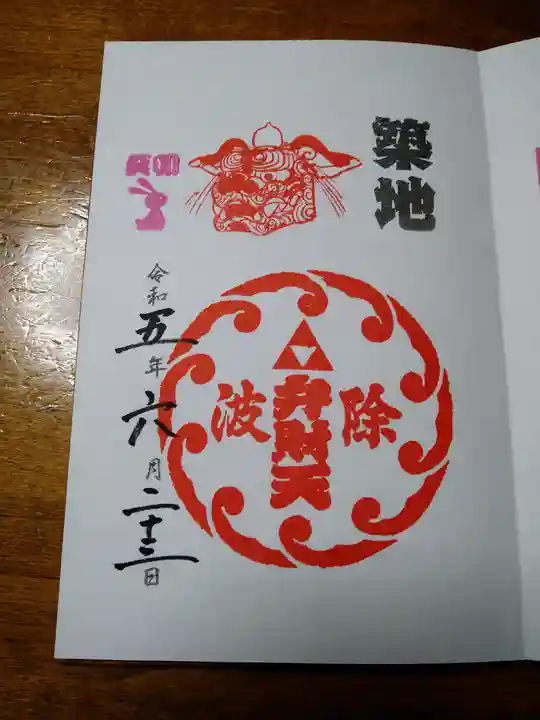 築地
除 弁財天 波
令和五年六月二十三日